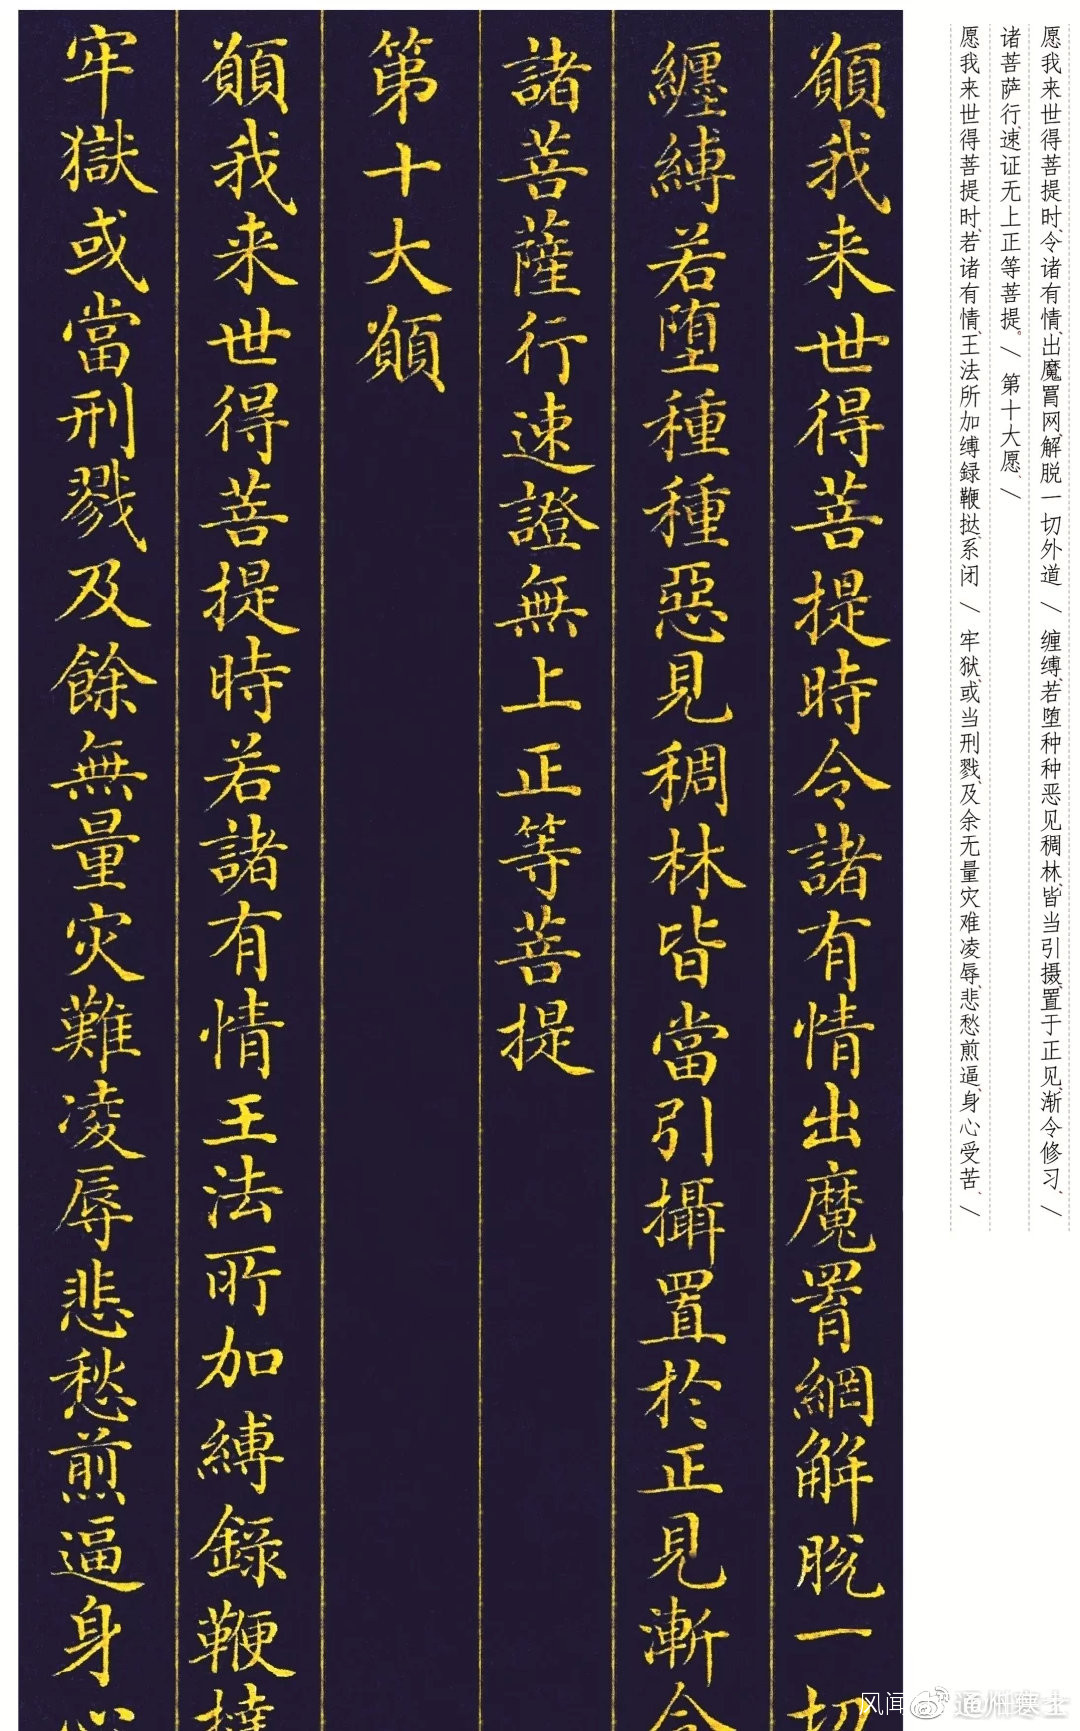 願我来世得菩提時令諸有情出魔罥網解脫一切
纏縛若墮種種惡見稠林皆當引攝置於正見漸令
諸菩薩行速證無上正等菩提
第十大願
願我来世得菩提時若諸有情王法所加縛錄鞭撻
牢獄或當刑戮及餘無量灾難凌辱悲愁煎逼身心
愿我来世得菩提时、令诸有情、出魔罥网、解脱一切外道 / 缠缚、若堕种种恶见稠林、皆当引摄、置于正见、渐令修习、/
诸菩萨行、速证无上正等菩提。/ 第十大愿、/
愿我来世得菩提时、若诸有情、王法所加缚録鞭挞、系闭 / 牢狱、或当刑戮、及余无量灾难凌辱、悲愁煎逼、身心受苦、/
风闻